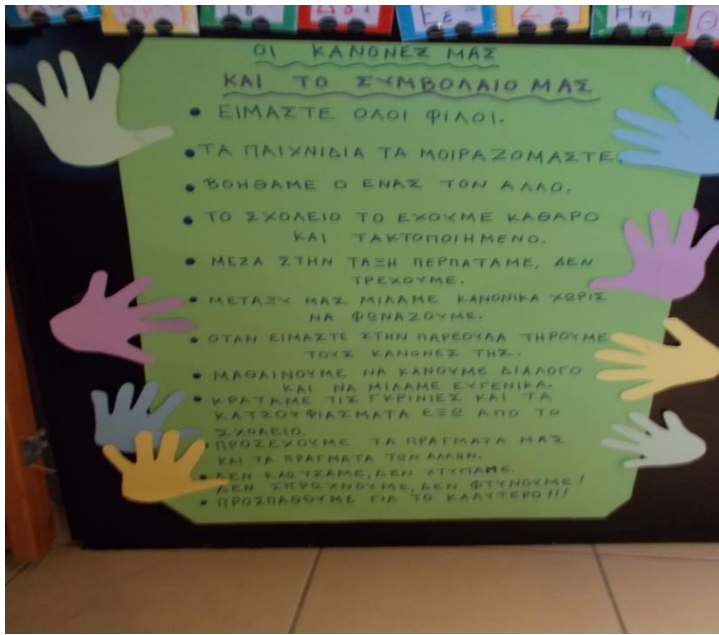 Δδ
Εε
Ζζ
Ηη
Θ
ΟΙ ΚΑΝΟΝΕΣ ΜΑΣ
ΚΑΙ ΤΟ ΣΥΜΒΟΛΑΙΟ ΜΑΣ
• ΕΙΜΑΣΤΕ ΟΛΟΙ ΦΙΛΟΙ.
• ΤΑ ΠΑΙΧΝΙΔΙΑ ΤΑ ΜΟΙΡΑΖΟΜΑΣΤΕ.
• ΒΟΗΘΑΜΕ Ο ΕΝΑΣ ΤΟΝ ΑΛΛΟ.
• ΤΟ ΣΧΟΛΕΙΟ ΤΟ ΕΧΟΥΜΕ ΚΑΘΑΡΟ
ΚΑΙ ΤΑΚΤΟΠΟΙΗΜΕΝΟ.
• ΜΕΣΑ ΣΤΗΝ ΤΑΞΗ ΠΕΡΠΑΤΑΜΕ, ΔΕΝ
ΤΡΕΧΟΥΜΕ.
• ΜΕΤΑΞΥ ΜΑΣ ΜΙΛΑΜΕ ΚΑΝΟΝΙΚΑ ΧΩΡΙΣ
ΝΑ ΦΩΝΑΖΟΥΜΕ.
• ΟΤΑΝ ΕΙΜΑΣΤΕ ΣΤΗΝ ΠΑΡΕΟΥΛΑ ΤΗΡΟΥΜΕ
ΤΟΥΣ ΚΑΝΟΝΕΣ ΤΗΣ.
• ΜΑΘΑΙΝΟΥΜΕ ΝΑ ΚΑΝΟΥΜΕ ΔΙΑΛΟΓΟ
ΚΑΙ ΝΑ ΜΙΛΑΜΕ ΕΥΓΕΝΙΚΑ.
• ΚΡΑΤΑΜΕ ΤΙΣ ΓΚΡΙΝΙΕΣ ΚΑΙ ΤΑ
ΚΑΤΣΟΥΦΙΑΣΜΑΤΑ ΕΞΩ ΑΠΟ ΤΟ
ΣΧΟΛΕΙΟ.
• ΠΡΟΣΕΧΟΥΜΕ ΤΑ ΠΡΑΓΜΑΤΑ ΜΑΣ
ΚΑΙ ΤΑ ΠΡΑΓΜΑΤΑ ΤΩΝ ΑΛΛΩΝ.
• ΔΕΝ ΚΛΩΤΣΑΜΕ, ΔΕΝ ΧΤΥΠΑΜΕ.
ΔΕΝ ΣΠΡΩΧΝΟΥΜΕ, ΔΕΝ ΦΤΥΝΟΥΜΕ!
• ΠΡΟΣΠΑΘΟΥΜΕ ΓΙΑ ΤΟ ΚΑΛΥΤΕΡΟ!!!